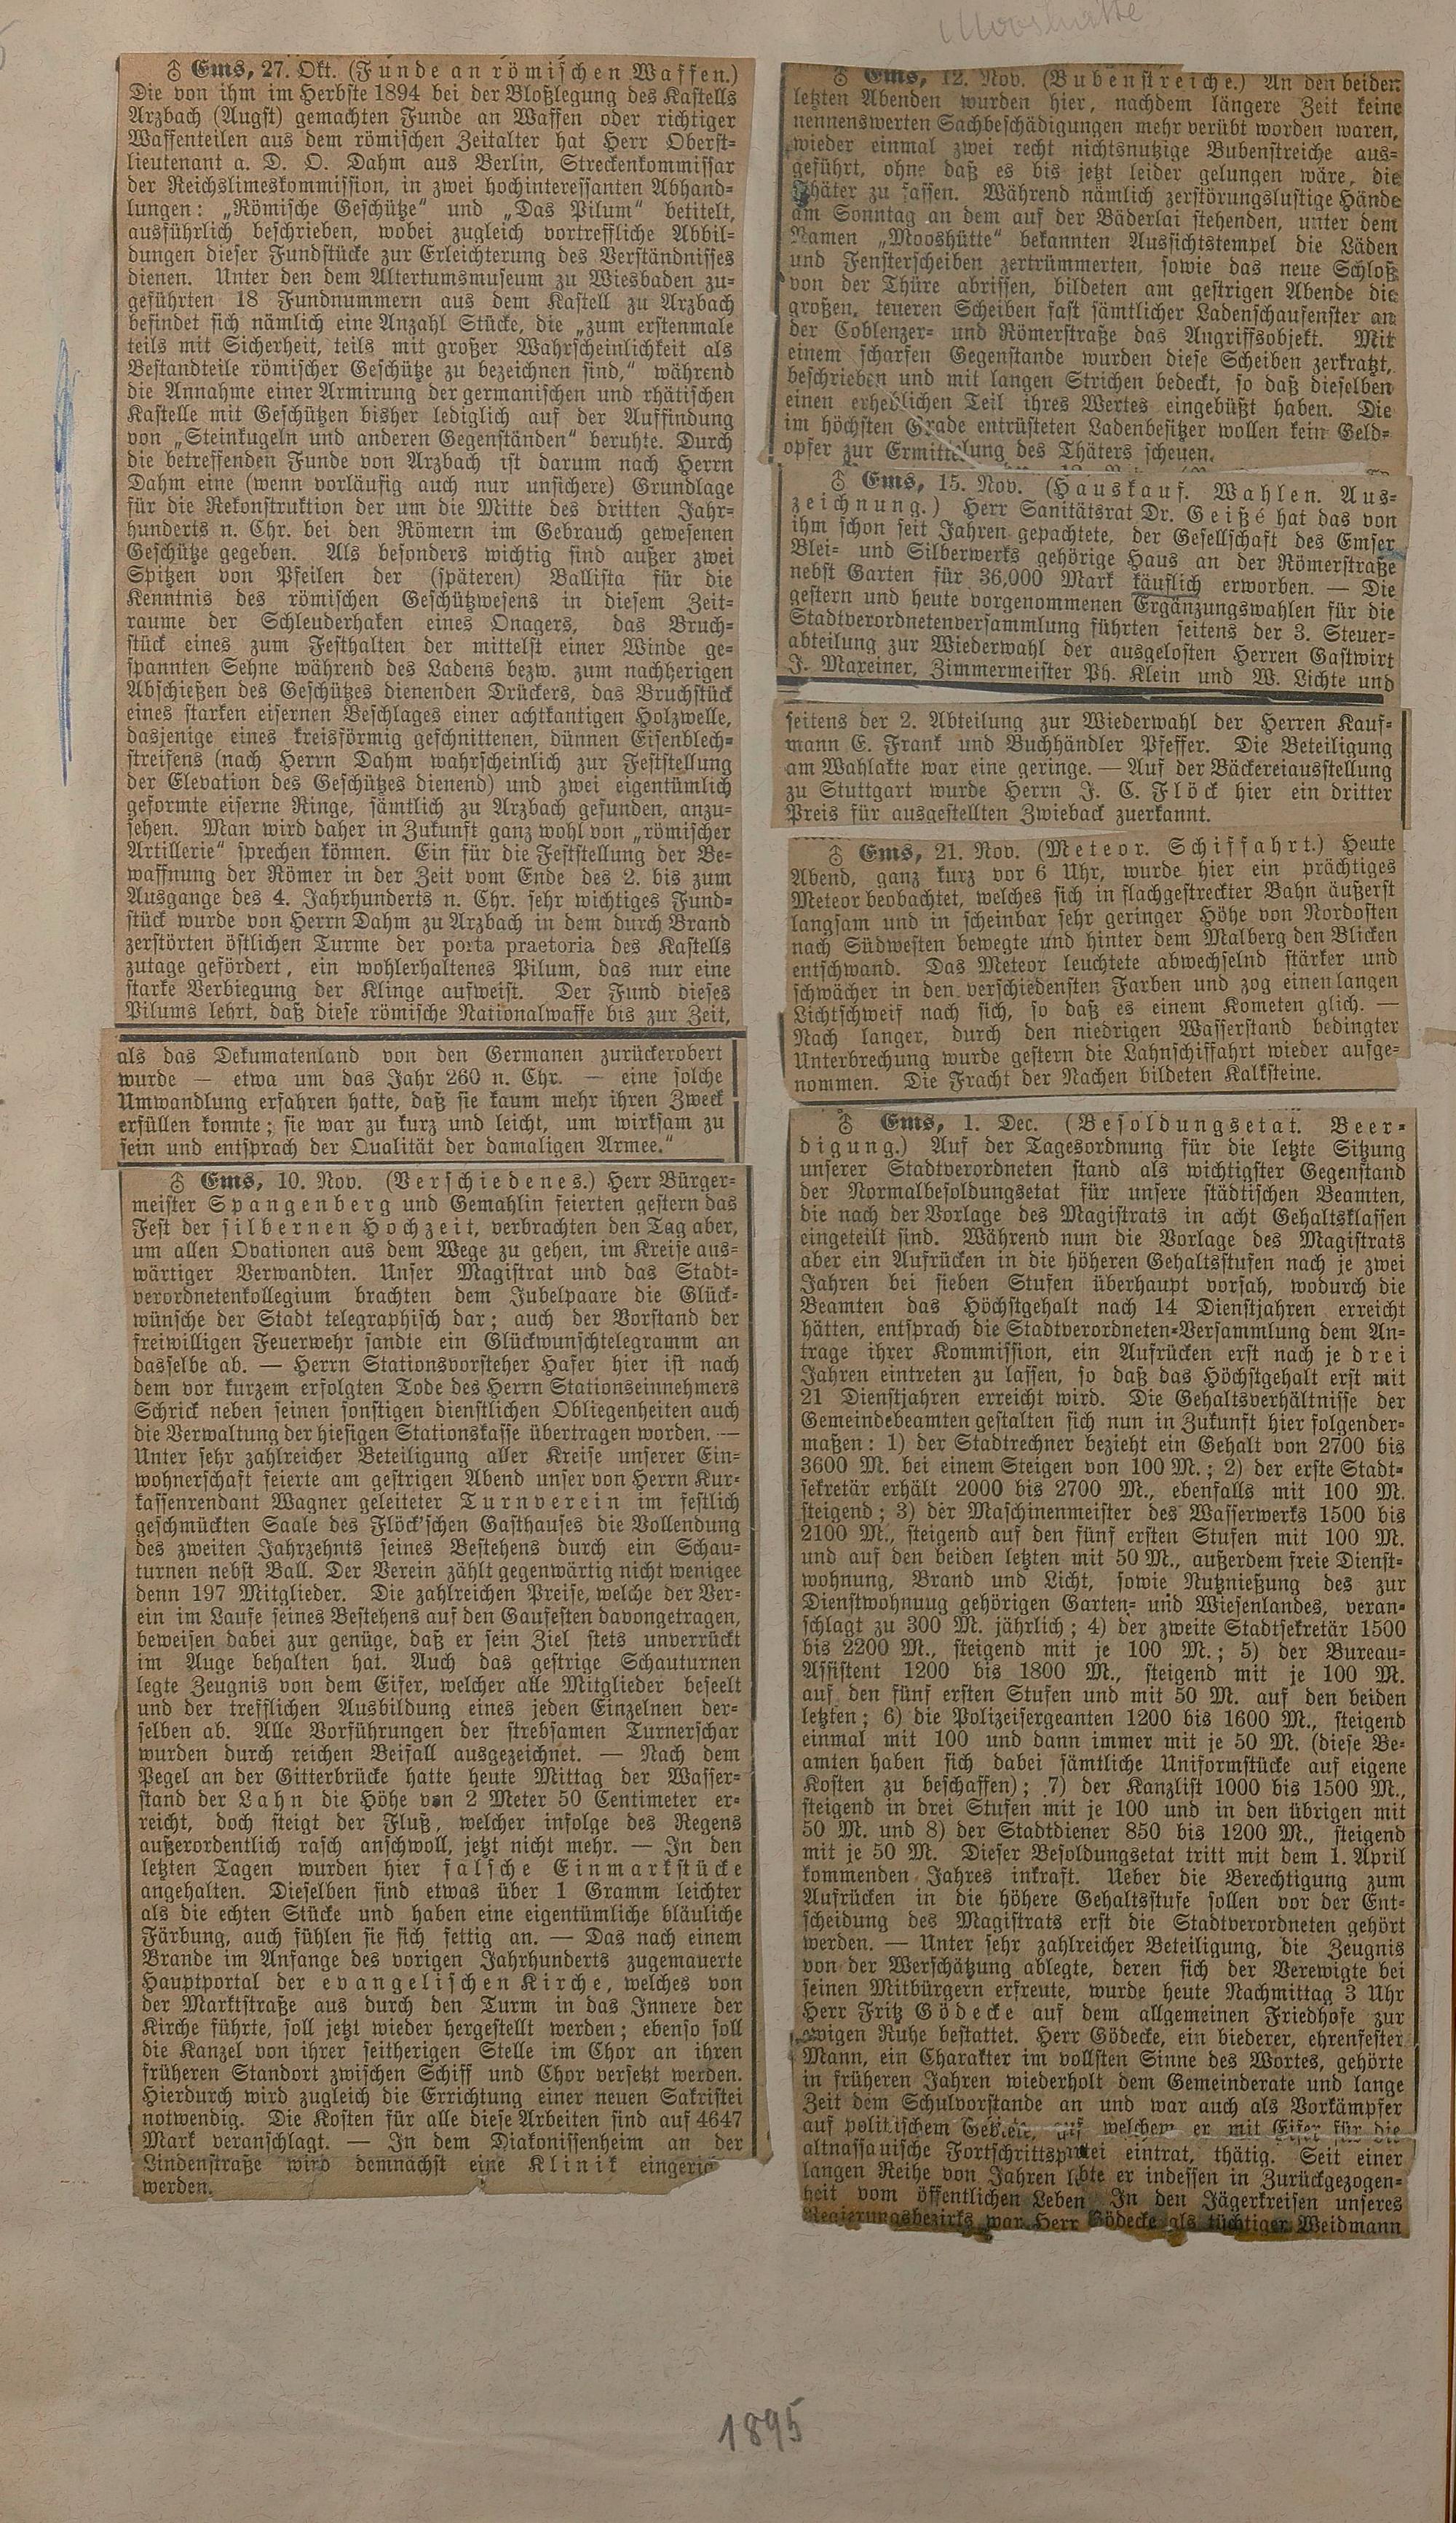 Mooshütte
♁ Ems, 27. Okt. (Funde an römischen Waffen.)
Die von ihm im Herbste 1894 bei der Bloßlegung des Kastells
Arzbach (Augst) gemachten Funde an Waffen oder richtiger
Waffenteilen aus dem römischen Zeitalter hat Herr Oberst-
lieutenant a. D. O. Dahm aus Berlin, Streckenkommissar
der Reichslimeskommission, in zwei hochinteressanten Abhand-
lungen: „Römische Geschütze“ und „Das Pilum“ betitelt,
ausführlich beschrieben, wobei zugleich vortreffliche Abbil-
dungen dieser Fundstücke zur Erleichterung des Verständnisses
dienen. Unter den dem Altertumsmuseum zu Wiesbaden zu-
geführten 18 Fundnummern aus dem Kastell zu Arzbach
befindet sich nämlich eine Anzahl Stücke, die „zum erstenmale
teils mit Sicherheit, teils mit großer Wahrscheinlichkeit als
Bestandteile römischer Geschütze zu bezeichnen sind,“ während
die Annahme einer Armirung der germanischen und rhätischen
Kastelle mit Geschützen bisher lediglich auf der Auffindung
von „Steinkugeln und anderen Gegenständen“ beruhte. Durch
die betreffenden Funde von Arzbach ist darum nach Herrn
Dahm eine (wenn vorläufig auch nur unsichere) Grundlage
für die Rekonstruktion der um die Mitte des dritten Jahr-
hunderts n. Chr. bei den Römern im Gebrauch gewesenen
Geschütze gegeben. Als besonders wichtig sind außer zwei
Spitzen von Pfeilen der (späteren) Ballista für die
Kenntnis des römischen Geschützwesens in diesem Zeit-
raume der Schleuderhaken eines Onagers, das Bruch-
stück eines zum Festhalten der mittelst einer Winde ge-
spannten Sehne während des Ladens bezw. zum nachherigen
Abschießen des Geschützes dienenden Drückers, das Bruchstück
eines starken eisernen Beschlages einer achtkantigen Holzwelle,
dasjenige eines kreisförmig geschnittenen, dünnen Eisenblech-
streifens (nach Herrn Dahm wahrscheinlich zur Feststellung
der Elevation des Geschützes dienend) und zwei eigentümlich
geformte eiserne Ringe, sämtlich zu Arzbach gefunden, anzu-
sehen. Man wird daher in Zukunft ganz wohl von „römischer
Artillerie“ sprechen können. Ein für die Feststellung der Be-
waffnung der Römer in der Zeit vom Ende des 2. bis zum
Ausgange des 4. Jahrhunderts n. Chr. sehr wichtiges Fund-
stück wurde von Herrn Dahm zu Arzbach in dem durch Brand
zerstörten östlichen Turme der porta praetoria des Kastells
zutage gefördert, ein wohlerhaltenes Pilum, das nur eine
starke Verbiegung der Klinge aufweist. Der Fund dieses
Pilums lehrt, daß diese römische Nationalwaffe bis zur Zeit,
als das Dekumatenland von den Germanen zurückerobert
wurde — etwa um das Jahr 260 n. Chr. — eine solche
Umwandlung erfahren hatte, daß sie kaum mehr ihren Zweck
erfüllen konnte; sie war zu kurz und leicht, um wirksam zu
sein und entsprach der Qualität der damaligen Armee.“
♁ Ems, 10. Nov. (Verschiedenes.) Herr Bürger-
meister Spangenberg und Gemahlin feierten gestern das
Fest der silbernen Hochzeit, verbrachten den Tag aber,
um allen Ovationen aus dem Wege zu gehen, im Kreise aus-
wärtiger Verwandten. Unser Magistrat und das Stadt-
verordnetenkollegium brachten dem Jubelpaare die Glück-
wünsche der Stadt telegraphisch dar; auch der Vorstand der
freiwilligen Feuerwehr sandte ein Glückwunschtelegramm an
dasselbe ab. — Herrn Stationsvorsteher Hafer hier ist nach
dem vor kurzem erfolgten Tode des Herrn Stationseinnehmers
Schrick neben seinen sonstigen dienstlichen Obliegenheiten auch
die Verwaltung der hiesigen Stationskasse übertragen worden. —
Unter sehr zahlreicher Beteiligung aller Kreise unserer Ein-
wohnerschaft feierte am gestrigen Abend unser von Herrn Kur-
kassenrendant Wagner geleiteter Turnverein im festlich
geschmückten Saale des Flöck'schen Gasthauses die Vollendung
des zweiten Jahrzehnts seines Bestehens durch ein Schau-
turnen nebst Ball. Der Verein zählt gegenwärtig nicht wenigee
denn 197 Mitglieder. Die zahlreichen Preise, welche der Ver-
ein im Laufe seines Bestehens auf den Gaufesten davongetragen,
beweisen dabei zur genüge, daß er sein Ziel stets unverrückt
im Auge behalten hat. Auch das gestrige Schauturnen
legte Zeugnis von dem Eifer, welcher alle Mitglieder beseelt
und der trefflichen Ausbildung eines jeden Einzelnen der-
selben ab. Alle Vorführungen der strebsamen Turnerschar
wurden durch reichen Beifall ausgezeichnet. — Nach dem
Pegel an der Gitterbrücke hatte heute Mittag der Wasser-
stand der Lahn die Höhe von 2 Meter 50 Centimeter er-
reicht, doch steigt der Fluß, welcher infolge des Regens
außerordentlich rasch anschwoll, jetzt nicht mehr. — In den
letzten Tagen wurden hier falsche Einmarkstücke
angehalten. Dieselben sind etwas über 1 Gramm leichter
als die echten Stücke und haben eine eigentümliche bläuliche
Färbung, auch fühlen sie sich fettig an. — Das nach einem
Brande im Anfange des vorigen Jahrhunderts zugemauerte
Hauptportal der evangelischen Kirche, welches von
der Marktstraße aus durch den Turm in das Innere der
Kirche führte, soll jetzt wieder hergestellt werden; ebenso soll
die Kanzel von ihrer seitherigen Stelle im Chor an ihren
früheren Standort zwischen Schiff und Chor versetzt werden.
Hierdurch wird zugleich die Errichtung einer neuen Sakristei
notwendig. Die Kosten für alle diese Arbeiten sind auf 4647
Mark veranschlagt. — In dem Diakonissenheim an der
Lindenstraße wird demnächst eine Klinik eingeric
werden.
♁ Ems, 12. Nov. (Bubenstreiche.) An den beiden
letzten Abenden wurden hier, nachdem längere Zeit keine
nennenswerten Sachbeschädigungen mehr verübt worden waren,
wieder einmal zwei recht nichtsnutzige Bubenstreiche aus-
geführt, ohne daß es bis jetzt leider gelungen wäre, die
Thäter zu fassen. Während nämlich zerstörungslustige Hände
am Sonntag an dem auf der Bäderlai stehenden, unter dem
Namen „Mooshütte“ bekannten Aussichtstempel die Läden
und Fensterscheiben zertrümmerten, sowie das neue Schloß
von der Thüre abrissen, bildeten am gestrigen Abende die
großen, teueren Scheiben fast sämtlicher Ladenschaufenster an
der Coblenzer- und Römerstraße das Angriffsobjekt. Mit
einem scharfen Gegenstande wurden diese Scheiben zerkratzt,
beschrieben und mit langen Strichen bedeckt, so daß dieselben
einen erheblichen Teil ihres Wertes eingebüßt haben. Die
im höchsten Grade entrüsteten Ladenbesitzer wollen kein Geld-
opfer zur Ermittelung des Thäters scheuen.
♁ Ems, 15. Nov. (Hauskauf. Wahlen. Aus-
zeichnung.) Herr Sanitätsrat Dr. Geißé hat das von
ihm schon seit Jahren gepachtete, der Gesellschaft des Emser
Blei- und Silberwerks gehörige Haus an der Römerstraße
nebst Garten für 36,000 Mark käuflich erworben. — Die
gestern und heute vorgenommenen Ergänzungswahlen für die
Stadtverordnetenversammlung führten seitens der 3. Steuer-
abteilung zur Wiederwahl der ausgelosten Herren Gastwirt
J. Maxeiner, Zimmermeister Ph. Klein und W. Lichte und
seitens der 2. Abteilung zur Wiederwahl der Herren Kauf-
mann E. Frank und Buchhändler Pfeffer. Die Beteiligung
am Wahlakte war eine geringe. — Auf der Bäckereiausstellung
zu Stuttgart wurde Herrn J. C. Flöck hier ein dritter
Preis für ausgestellten Zwieback zuerkannt.
♁ Ems, 21. Nov. (Meteor. Schiffahrt.) Heute
Abend, ganz kurz vor 6 Uhr, wurde hier ein prächtiges
Meteor beobachtet, welches sich in flachgestreckter Bahn äußerst
langsam und in scheinbar sehr geringer Höhe von Nordosten
nach Südwesten bewegte und hinter dem Malberg den Blicken
entschwand. Das Meteor leuchtete abwechselnd stärker und
schwächer in den verschiedensten Farben und zog einen langen
Lichtschweif nach sich, so daß es einem Kometen glich. —
Nach langer, durch den niedrigen Wasserstand bedingter
Unterbrechung wurde gestern die Lahnschiffahrt wieder aufge-
nommen. Die Fracht der Nachen bildeten Kalksteine.
♁ Ems, 1. Dec. (Besoldungsetat. Beer-
digung.) Auf der Tagesordnung für die letzte Sitzung
unserer Stadtverordneten stand als wichtigster Gegenstand
der Normalbesoldungsetat für unsere städtischen Beamten,
die nach der Vorlage des Magistrats in acht Gehaltsklassen
eingeteilt sind. Während nun die Vorlage des Magistrats
aber ein Aufrücken in die höheren Gehaltsstufen nach je zwei
Jahren bei sieben Stufen überhaupt vorsah, wodurch die
Beamten das Höchstgehalt nach 14 Dienstjahren erreicht
hätten, entsprach die Stadtverordneten-Versammlung dem An-
trage ihrer Kommission, ein Aufrücken erst nach je drei
Jahren eintreten zu lassen, so daß das Höchstgehalt erst mit
21 Dienstjahren erreicht wird. Die Gehaltsverhältnisse der
Gemeindebeamten gestalten sich nun in Zukunft hier folgender-
maßen: 1) der Stadtrechner bezieht ein Gehalt von 2700 bis
3600 M. bei einem Steigen von 100 M.; 2) der erste Stadt-
sekretär erhält 2000 bis 2700 M., ebenfalls mit 100 M.
steigend; 3) der Maschinenmeister des Wasserwerks 1500 bis
2100 M., steigend auf den fünf ersten Stufen mit 100 M.
und auf den beiden letzten mit 50 M., außerdem freie Dienst-
wohnung, Brand und Licht, sowie Nutznießung des zur
Dienstwohnuug gehörigen Garten- und Wiesenlandes, veran-
schlagt zu 300 M. jährlich; 4) der zweite Stadtsekretär 1500
bis 2200 M., steigend mit je 100 M.; 5) der Bureau-
Assistent 1200 bis 1800 M., steigend mit je 100 M.
auf den fünf ersten Stufen und mit 50 M. auf den beiden
letzten; 6) die Polizeisergeanten 1200 bis 1600 M., steigend
einmal mit 100 und dann immer mit je 50 M. (diese Be-
amten haben sich dabei sämtliche Uniformstücke auf eigene
Kosten zu beschaffen); 7) der Kanzlist 1000 bis 1500 M.,
steigend in drei Stufen mit je 100 und in den übrigen mit
50 M. und 8) der Stadtdiener 850 bis 1200 M., steigend
mit je 50 M. Dieser Besoldungsetat tritt mit dem 1. April
kommenden Jahres inkraft. Ueber die Berechtigung zum
Aufrücken in die höhere Gehaltsstufe sollen vor der Ent-
scheidung des Magistrats erst die Stadtverordneten gehört
werden. — Unter sehr zahlreicher Beteiligung, die Zeugnis
von der Werschätzung ablegte, deren sich der Verewigte bei
seinen Mitbürgern erfreute, wurde heute Nachmittag 3 Uhr
Herr Fritz Gödecke auf dem allgemeinen Friedhofe zur
ewigen Ruhe bestattet. Herr Gödecke, ein biederer, ehrenfester
Mann, ein Charakter im vollsten Sinne des Wortes, gehörte
in früheren Jahren wiederholt dem Gemeinderate und lange
Zeit dem Schulvorstande an und war auch als Vorkämpfer
auf politischem Gebiete, auf welchem er mit Eifer für die
altnassauische Fortschrittspartei eintrat, thätig. Seit einer
langen Reihe von Jahren lebte er indessen in Zurückgezogen-
heit vom öffentlichen Leben. In den Jägerkreisen unseres
Regierungsbezirks war Herr Gödecke als tüchtiger Weidmann
1895